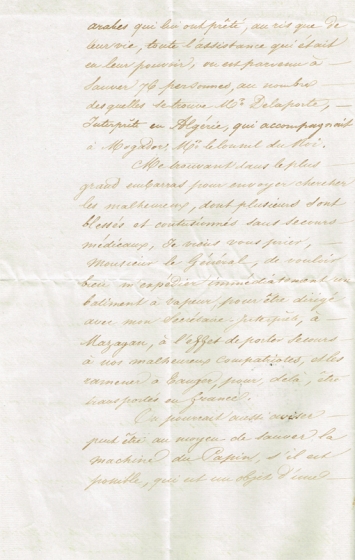 arabes qui lui ont prêté, au risque de
leur vie, toute l'assistance qui était
en leur pouvoir, on est parvenu à
sauver 76 personnes, au nombre
desquelles se trouve Mr. Delaporte,
Interprète en Algérie, qui accompagnait
à Mogador, Mr. le Consul du Roi.
Me trouvant dans le plus
grand embarras pour envoyer chercher
les malheureux, dont plusieurs sont
blessés et contusionnés sans secours
médicaux, Je viens vous prier,
Monsieur le Général, de vouloir
bien m'expédier immédiatement un
bâtiment à vapeur pour être dirigé
avec mon Secrétaire-Interprète, à
Mazagan, à l'effet de porter secours
à nos malheureux compatriotes, et les
ramener à Tanger, pour, de là, être
transportés en France.
On pourrait aussi aviser
peut être au moyen de sauver la
machine du Papin, s'il est
possible, qui est un objet d'une